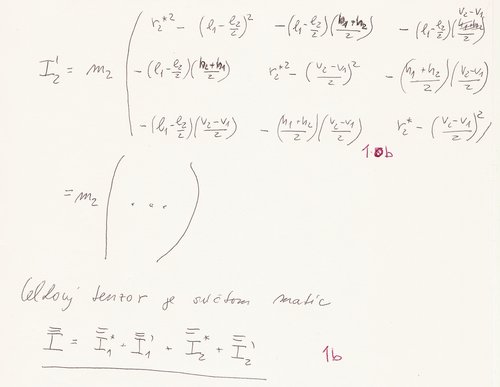 I₂' = m₂ ( r₂*² − (l₁−l₂/2)² −(l₁−l₂/2)((h₁+h₂)/2) −(l₁−l₂/2)((v₂−v₁)/2)
−(l₁−l₂/2)((h₂+h₁)/2) r₂*² − ((v₂−v₁)/2)² −((h₁+h₂)/2)((v₂−v₁)/2)
−(l₁−l₂/2)((v₂−v₁)/2) −((h₁+h₂)/2)((v₂−v₁)/2) r₂* − ((v₂−v₁)/2)² )
1.0b
= m₂ ( . . . )
Celkový tenzor je súčtom matíc
I = I₁* + I₁' + I₂* + I₂' 1b